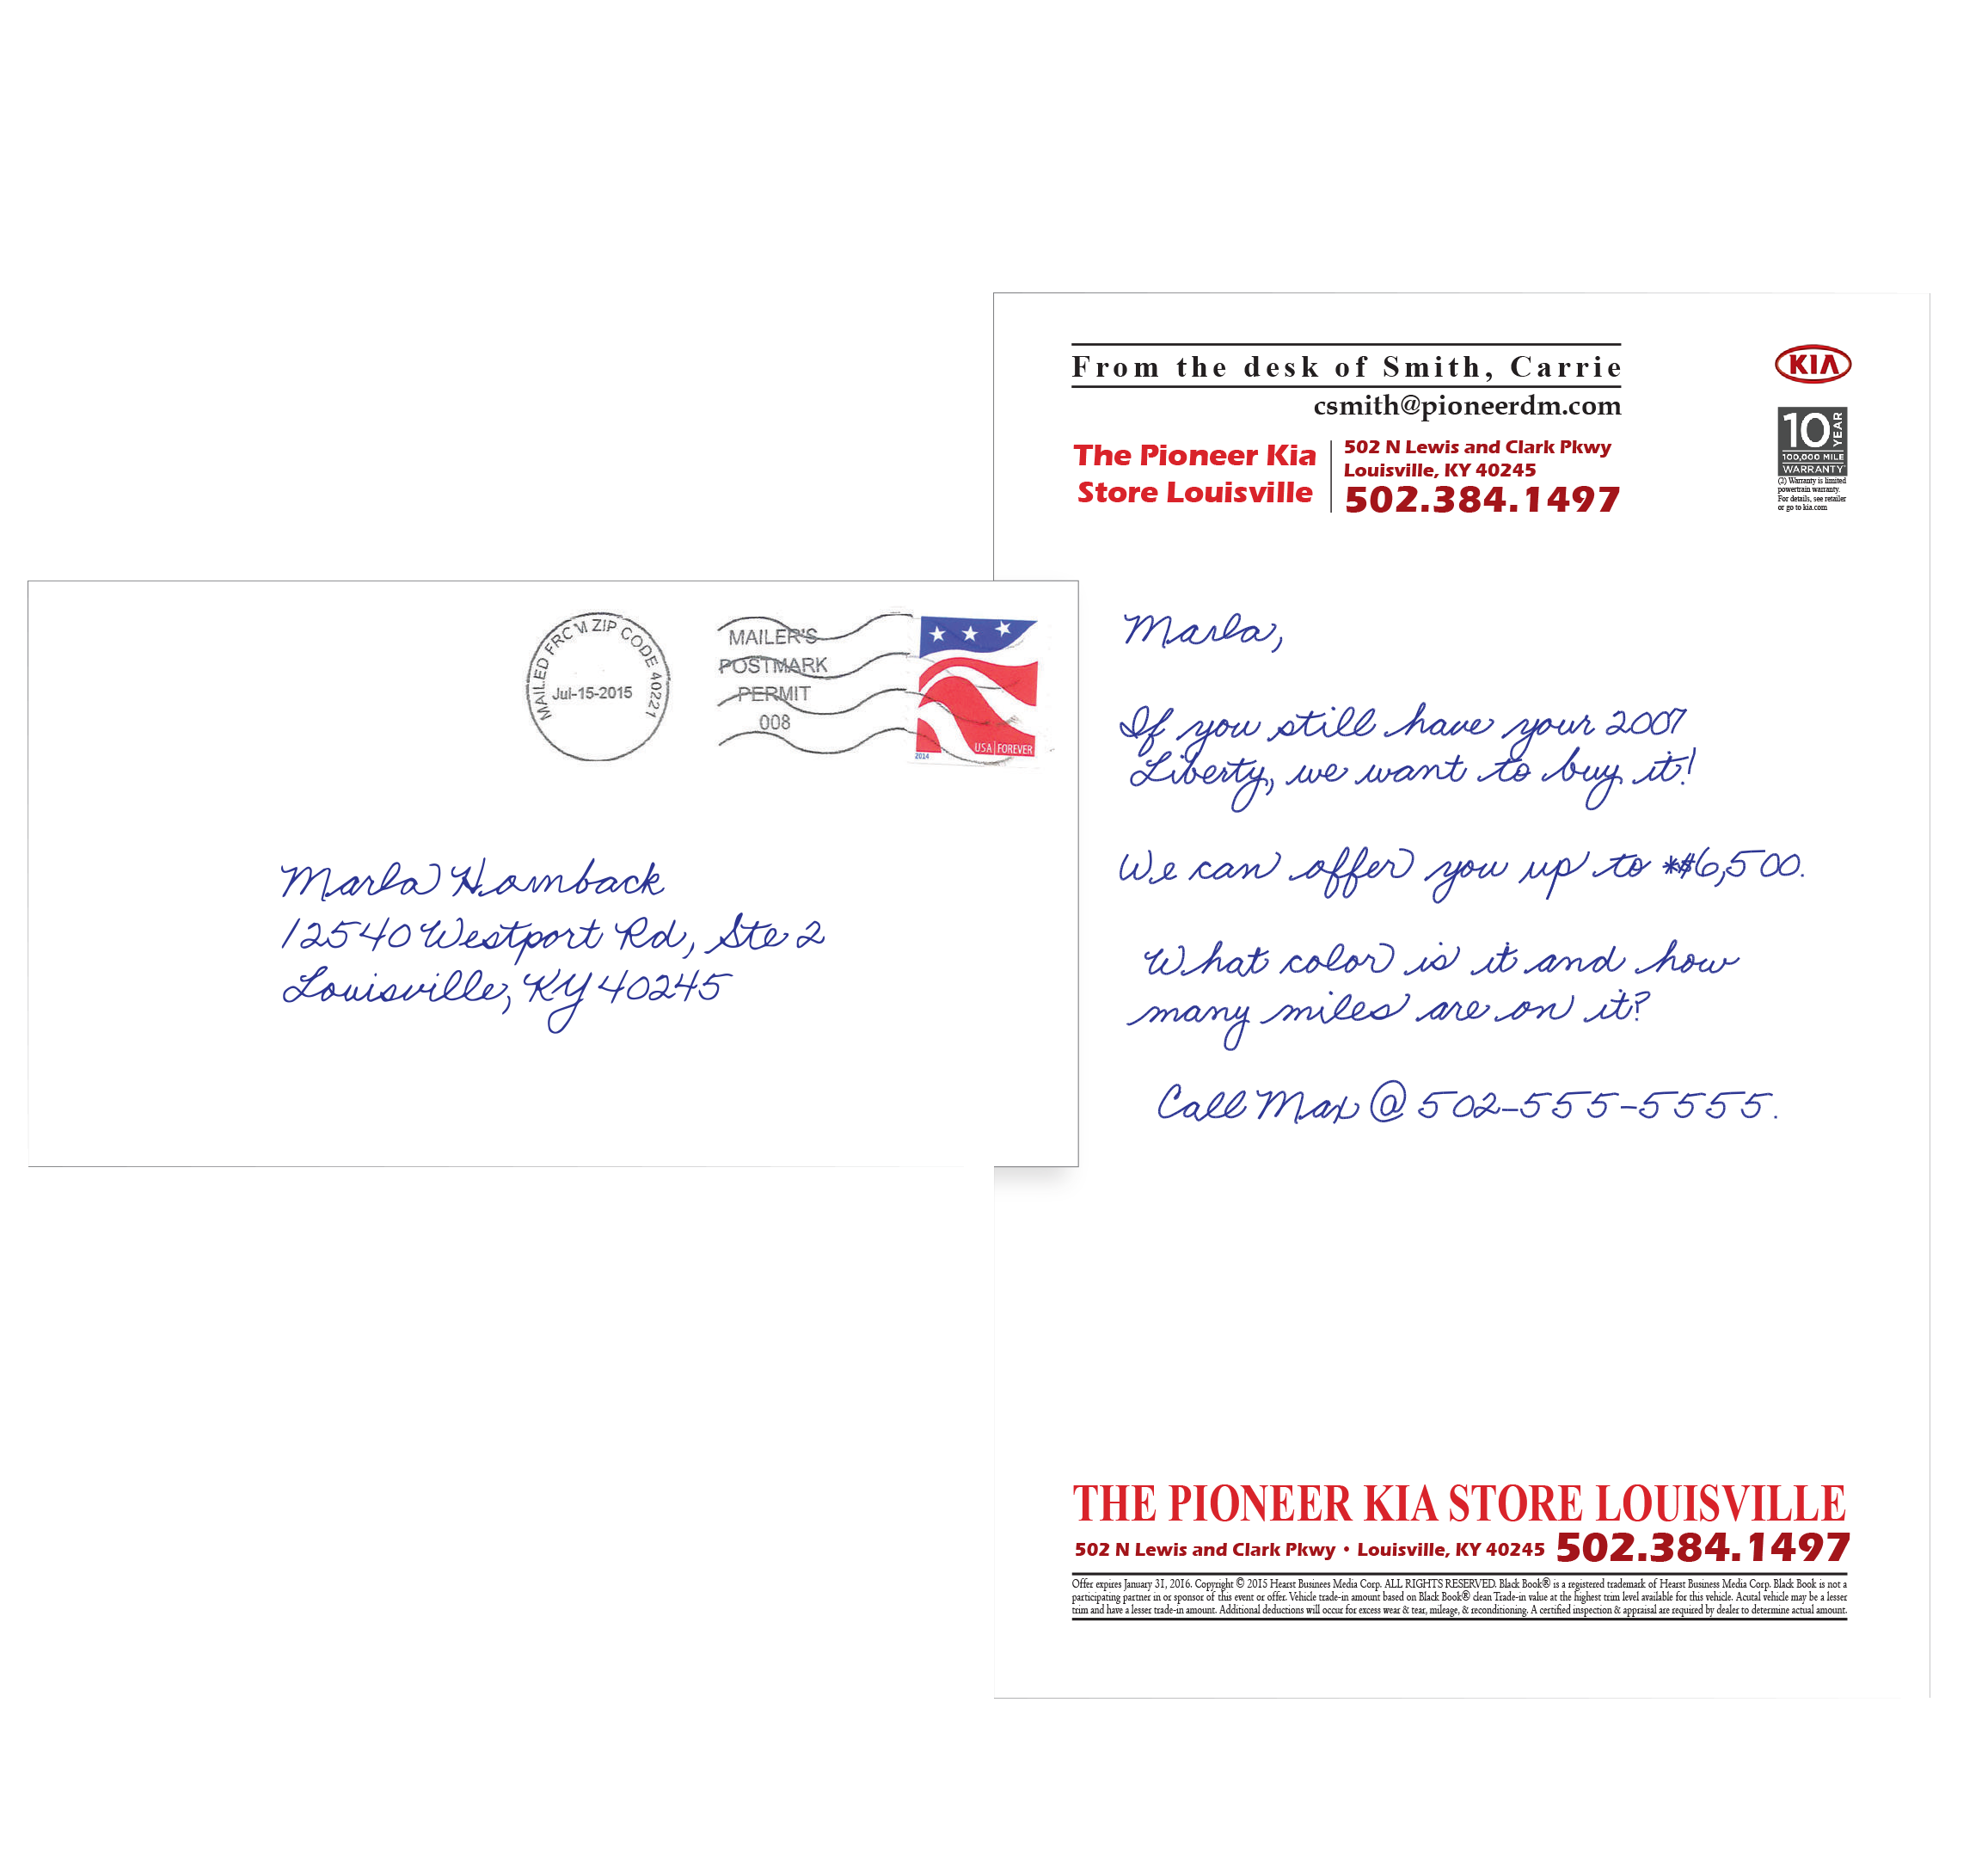 MAILED FROM ZIP CODE 40221
Jul-15-2015
MAILER'S
POSTMARK
PERMIT
008
USA FOREVER
2014
Marla Hornback
12540 Westport Rd, Ste 2
Louisville, KY 40245
From the desk of Smith, Carrie
csmith@pioneerdm.com
The Pioneer Kia
Store Louisville
502 N Lewis and Clark Pkwy
Louisville, KY 40245
502.384.1497
KIA
10 YEAR
100,000 MILE
WARRANTY
(2) Warranty is limited
powertrain warranty.
For details, see retailer
or go to kia.com
Marla,
If you still have your 2007
Liberty, we want to buy it!
We can offer you up to *$6,500.
What color is it and how
many miles are on it?
Call Max @ 502-555-5555.
THE PIONEER KIA STORE LOUISVILLE
502 N Lewis and Clark Pkwy • Louisville, KY 40245 502.384.1497
Offer expires January 31, 2016. Copyright © 2015 Hearst Businees Media Corp. ALL RIGHTS RESERVED. Black Book® is a registered trademark of Hearst Business Media Corp. Black Book is not a
participating partner in or sponsor of this event or offer. Vehicle trade-in amount based on Black Book® clean Trade-in value at the highest trim level available for this vehicle. Acutal vehicle may be a lesser
trim and have a lesser trade-in amount. Additional deductions will occur for excess wear & tear, mileage, & reconditioning. A certified inspection & appraisal are required by dealer to determine actual amount.